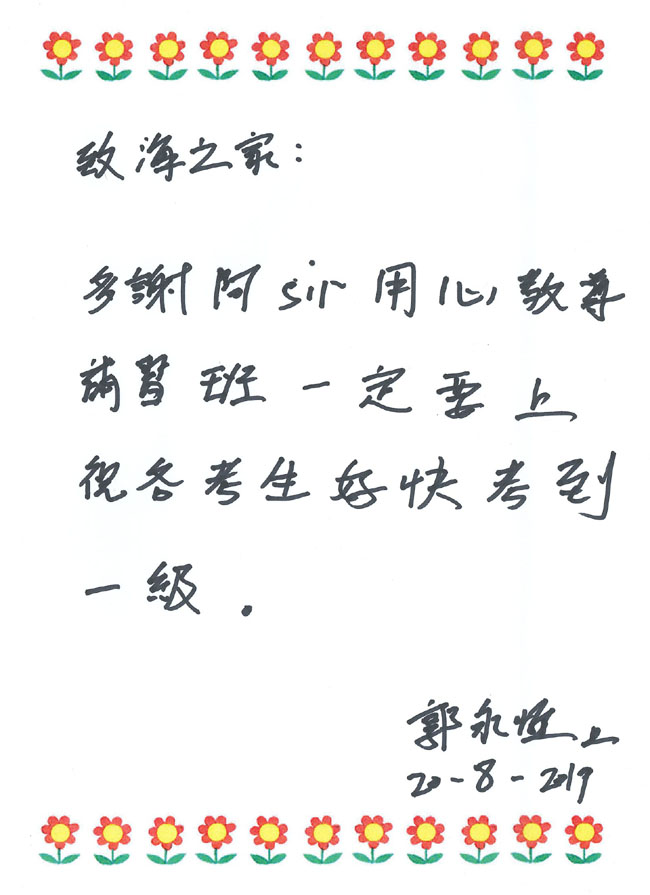 致海之家：
多謝阿sir用心教导
補習班一定要上
祝各考生好快考到
一級．
郭永恆上
20-8-2019